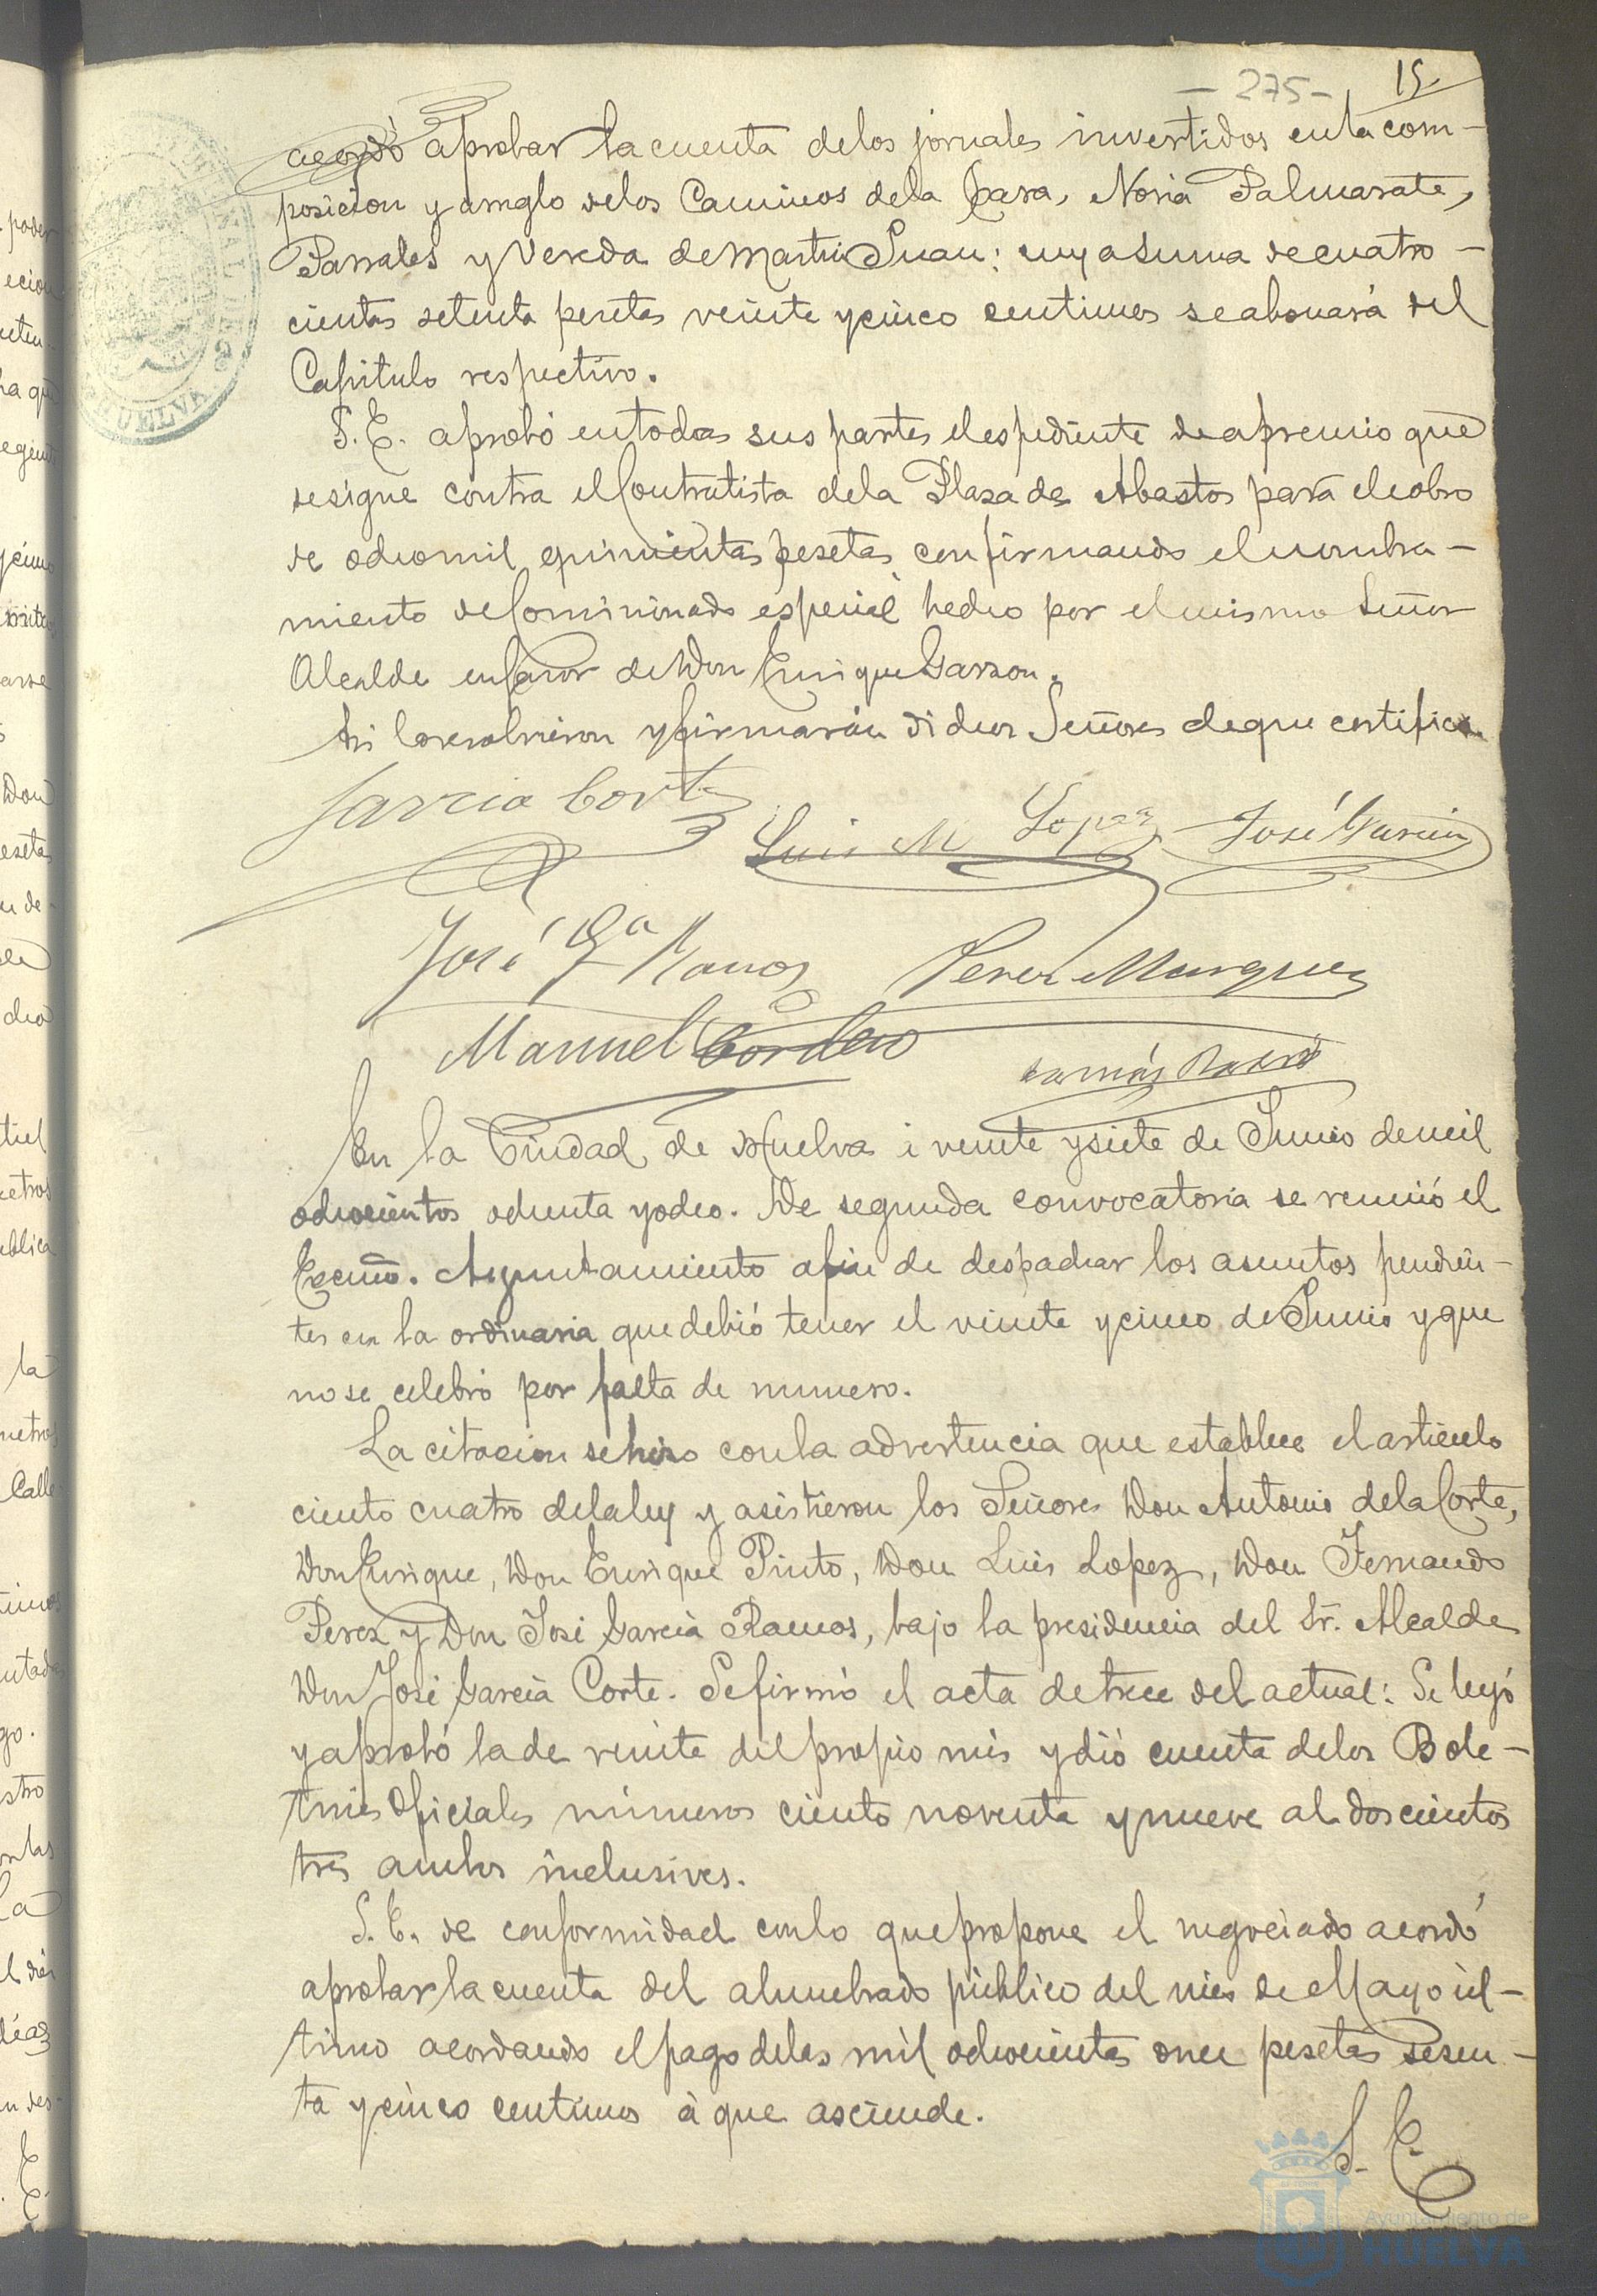 - 275 - 15.
acordó aprobar la cuenta de los jornales invertidos en la com-
posicion y arreglo de los Caminos de la , Noria Palmarate,
Parrales y Vereda de Martin Juan: cuya suma de cuatro-
cientas setenta pesetas veinte y cinco centimos se abonará del
Capitulo respectivo.
S. E. aprobó en todas sus partes el espediente de apremio que
se sigue contra el Contratista de la Plaza de Abastos para el cobro
de ocho mil quinientas pesetas confirmando el nombra-
miento de Comisionado especial hecho por el mismo Señor
Alcalde en favor de Don Enrique Garzon.
Asi lo resolvieron y firmarán dichos Señores de que certifico.
Garcia Corte
Luis M Lopez José Garcia
José Ga Ramos Perez Marquez
Manuel Cordero
Tomás
En la Ciudad de Huelva á veinte y siete de Junio de mil
ochocientos ochenta y ocho. De segunda convocatoria se reunió el
Excmo. Ayuntamiento a fin de despachar los asuntos pendien-
tes en la ordinaria que debió tener el veinte y cinco de Junio y que
no se celebró por falta de numero.
La citacion se hizo con la advertencia que establece el articulo
ciento cuatro de la ley y asistieron los Señores Don Antonio de la Corte,
Don Enrique, Don Enrique Pinto, Don Luis Lopez, Don Fernando
Perez y Don José Garcia Ramos, bajo la presidencia del Sr. Alcalde
Don José Garcia Corte. Se firmó el acta de trece del actual: Se leyó
y aprobó la de veinte del propio mes y dió cuenta de los Bole-
tines Oficiales números ciento noventa y nueve al doscientos
tres ambos inclusives.
S. E. de conformidad con lo que propone el negociado acordó
aprobar la cuenta del alumbrado público del mes de Mayo úl-
timo acordando el pago de las mil ochocientas once pesetas sesen-
ta y cinco centimos á que asciende.
S. E.
HUELVA
Ayuntamiento de
HUELVA